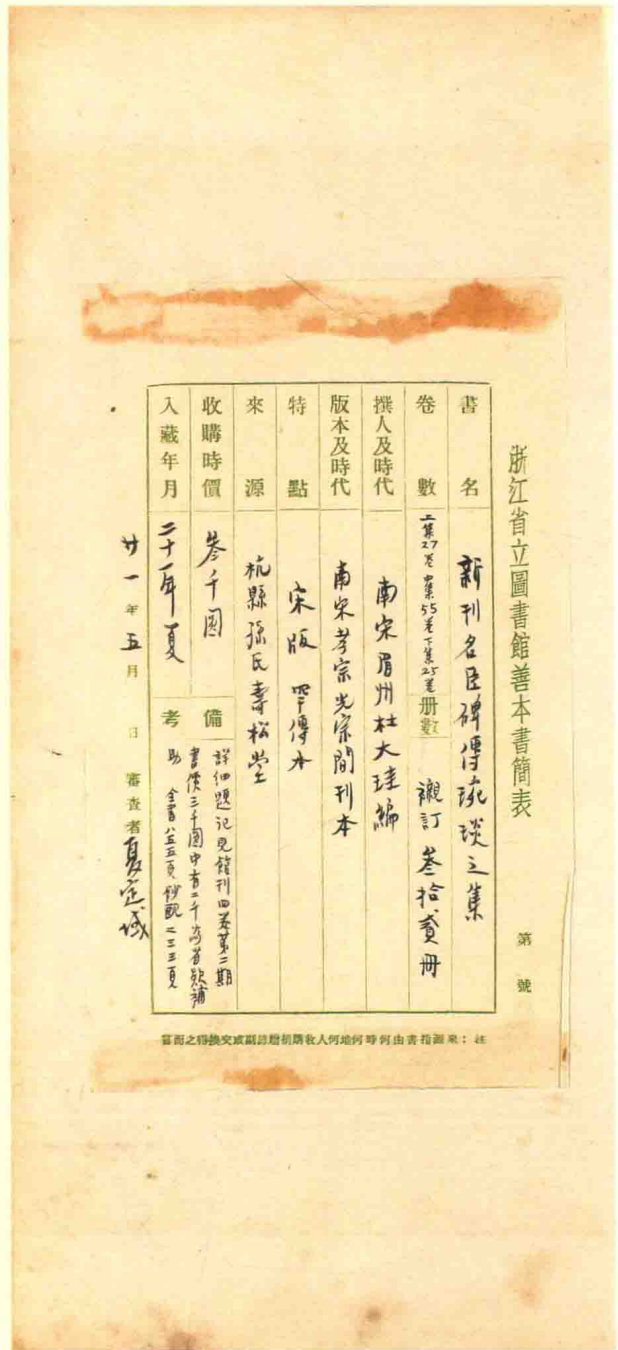 浙江省立圖書館善本書簡表
第 號
書名 新刊名臣碑傳琬琰之集
卷數 上集27卷 中集55卷 下集25卷 册數 襯訂 叁拾貳冊
撰人及時代 南宋眉州杜大珪編
版本及時代 南宋孝宗光宗間刊本
特點 宋版 罕傳本
來源 杭縣孫氏壽松堂
收購時價 叁千圓
備考 詳細題記見館刊四卷第二期
書價三千圓中有二千為省款補
助 全書八五五頁 鈔配二三三頁
入藏年月 二十一年夏
廿一年五月 日 審查者 夏定域
註：來源指書由何時何地何人收購